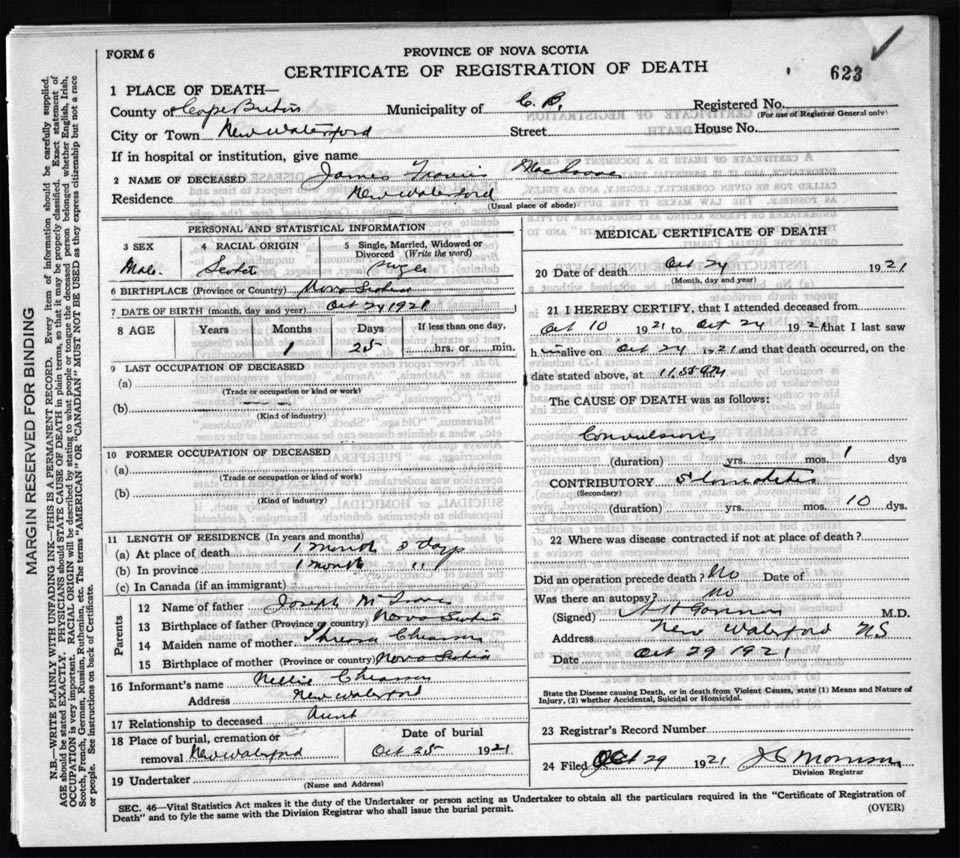 FORM 6
PROVINCE OF NOVA SCOTIA
CERTIFICATE OF REGISTRATION OF DEATH
623
1 PLACE OF DEATH—
County of Cape Breton Municipality of C. B. Registered No.
(For use of Registrar General only)
City or Town New Waterford Street House No.
If in hospital or institution, give name
2 NAME OF DECEASED James Francis MacIsaac
Residence New Waterford
(Usual place of abode)
PERSONAL AND STATISTICAL INFORMATION
3 SEX 4 RACIAL ORIGIN 5 Single, Married, Widowed or Divorced (Write the word)
Male. Scotch Single
6 BIRTHPLACE (Province or Country) Nova Scotia
7 DATE OF BIRTH (month, day and year) Oct 24 1921
8 AGE Years Months Days If less than one day,
1 25 hrs. or min.
9 LAST OCCUPATION OF DECEASED
(a)
(Trade or occupation or kind or work)
(b)
(Kind of industry)
10 FORMER OCCUPATION OF DECEASED
(a)
(Trade or occupation or kind of work)
(b)
(Kind of industry)
11 LENGTH OF RESIDENCE (In years and months)
(a) At place of death 1 month days
(b) In province 1 month "
(c) In Canada (if an immigrant)
Parents
12 Name of father Joseph
13 Birthplace of father (Province or country) Nova Scotia
14 Maiden name of mother Chiasson
15 Birthplace of mother (Province or country) Nova Scotia
16 Informant's name Nellie Chiasson
Address New Waterford
17 Relationship to deceased Aunt
18 Place of burial, cremation or removal New Waterford
Date of burial
Oct 25 1921
19 Undertaker
(Name and Address)
MEDICAL CERTIFICATE OF DEATH
20 Date of death Oct 24 1921
(Month, day and year)
21 I HEREBY CERTIFY, that I attended deceased from
Oct 10 1921 to Oct 24 1921 that I last saw
him alive on Oct 24 1921 and that death occurred, on the
date stated above, at 11.55
The CAUSE OF DEATH was as follows:
Convulsions
(duration) yrs. mos. 1 dys
CONTRIBUTORY Stomatitis
(Secondary)
(duration) yrs. mos. 10 dys.
22 Where was disease contracted if not at place of death?
Did an operation precede death? No Date of
Was there an autopsy? No
(Signed) M.D.
Address New Waterford NS
Date Oct 29 1921
State the Disease causing Death, or in death from Violent Causes, state (1) Means and Nature of
Injury, (2) whether Accidental, Suicidal or Homicidal.
23 Registrar's Record Number
24 Filed Oct 29 1921 J C Morrison
Division Registrar
SEC. 46—Vital Statistics Act makes it the duty of the Undertaker or person acting as Undertaker to obtain all the particulars required in the "Certificate of Registration of
Death" and to fyle the same with the Division Registrar who shall issue the burial permit.
(OVER)
MARGIN RESERVED FOR BINDING
N.B.—WRITE PLAINLY WITH UNFADING INK—THIS IS A PERMANENT RECORD. Every item of information should be carefully supplied.
AGE should be stated EXACTLY. PHYSICIANS should STATE CAUSE OF DEATH in plain terms, so that it may be properly classified. Exact statement of
OCCUPATION is very important. RACIAL ORIGIN will be described by stating to what people or tongue the deceased person belonged whether English, Irish,
Scotch, French, German, Russian, Ruthenian, etc. The terms "AMERICAN" OR "CANADIAN" MUST NOT BE USED as they express citizenship but not a race
or people. See instructions on back of Certificate.